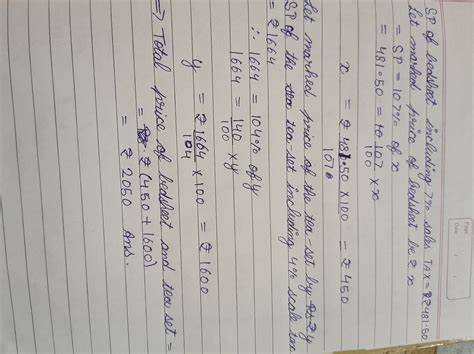 SP of bedsheet including 7% sales TAX = ₹481.50
Let marked price of bedsheet be ₹ x
= SP = 107% of x
= 481.50 = 107/100 × x
x = ₹ 481.50 × 100 / 107 = ₹ 450
Let marked price of the tea-set by ₹ y
SP of the tea-set including 4% scale tax
= ₹ 1664
∴ 1664 = 104% of y
1664 = 140/100 × y
y = ₹ 1664 × 100 / 104 = ₹ 1600
⇒ Total price of bedsheet and tea set =
= ₹ (450 + 1600)
= ₹ 2050 Ans.